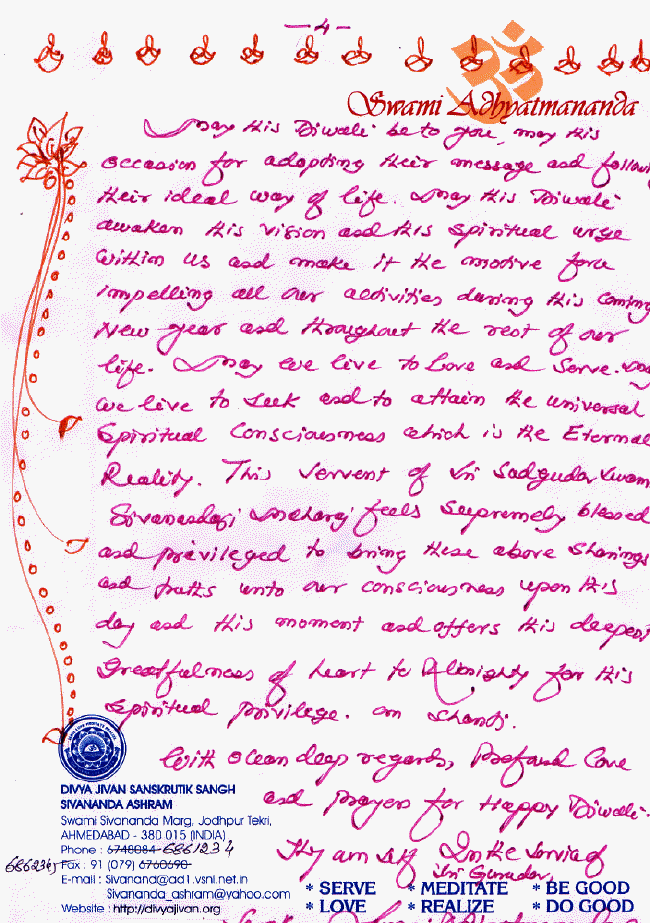 — 4 —
ॐ
Swami Adhyatmananda
May this Diwali be to you, may this
occasion for adopting their message and follow
their ideal way of life. May this Diwali
awaken this vision and this spiritual urge
within us and make it the motive force
impelling all our activities during this coming
New year and throughout the rest of our
life. May we live to Love and Serve. May
we live to seek and to attain the universal
Spiritual Consciousness which is the Eternal
Reality. This servent of Sri Sadgudev Swami
Sivanandaji Maharaj feels supremely blessed
and privileged to bring these above sharings
and truths unto our consciousness upon this
day and this moment and offers this deepest
Greatfulness of heart to Almighty for this
spiritual privilege. om shanti.
With ocean deep regards, Profound Love
and prayers for Happy Diwali.
Thy own self In the service of
Sri Gurudev,
DIVYA JIVAN SANSKRUTIK SANGH
SIVANANDA ASHRAM
Swami Sivananda Marg, Jodhpur Tekri,
AHMEDABAD - 380 015 (INDIA)
Phone : 6748084 - 6861234
6862345 Fax : 91 (079) 6760690
E-mail : Sivanand@ad1.vsnl.net.in
Sivananda_ashram@yahoo.com
Website : http://divyajivan.org
* SERVE * MEDITATE * BE GOOD
* LOVE * REALIZE * DO GOOD